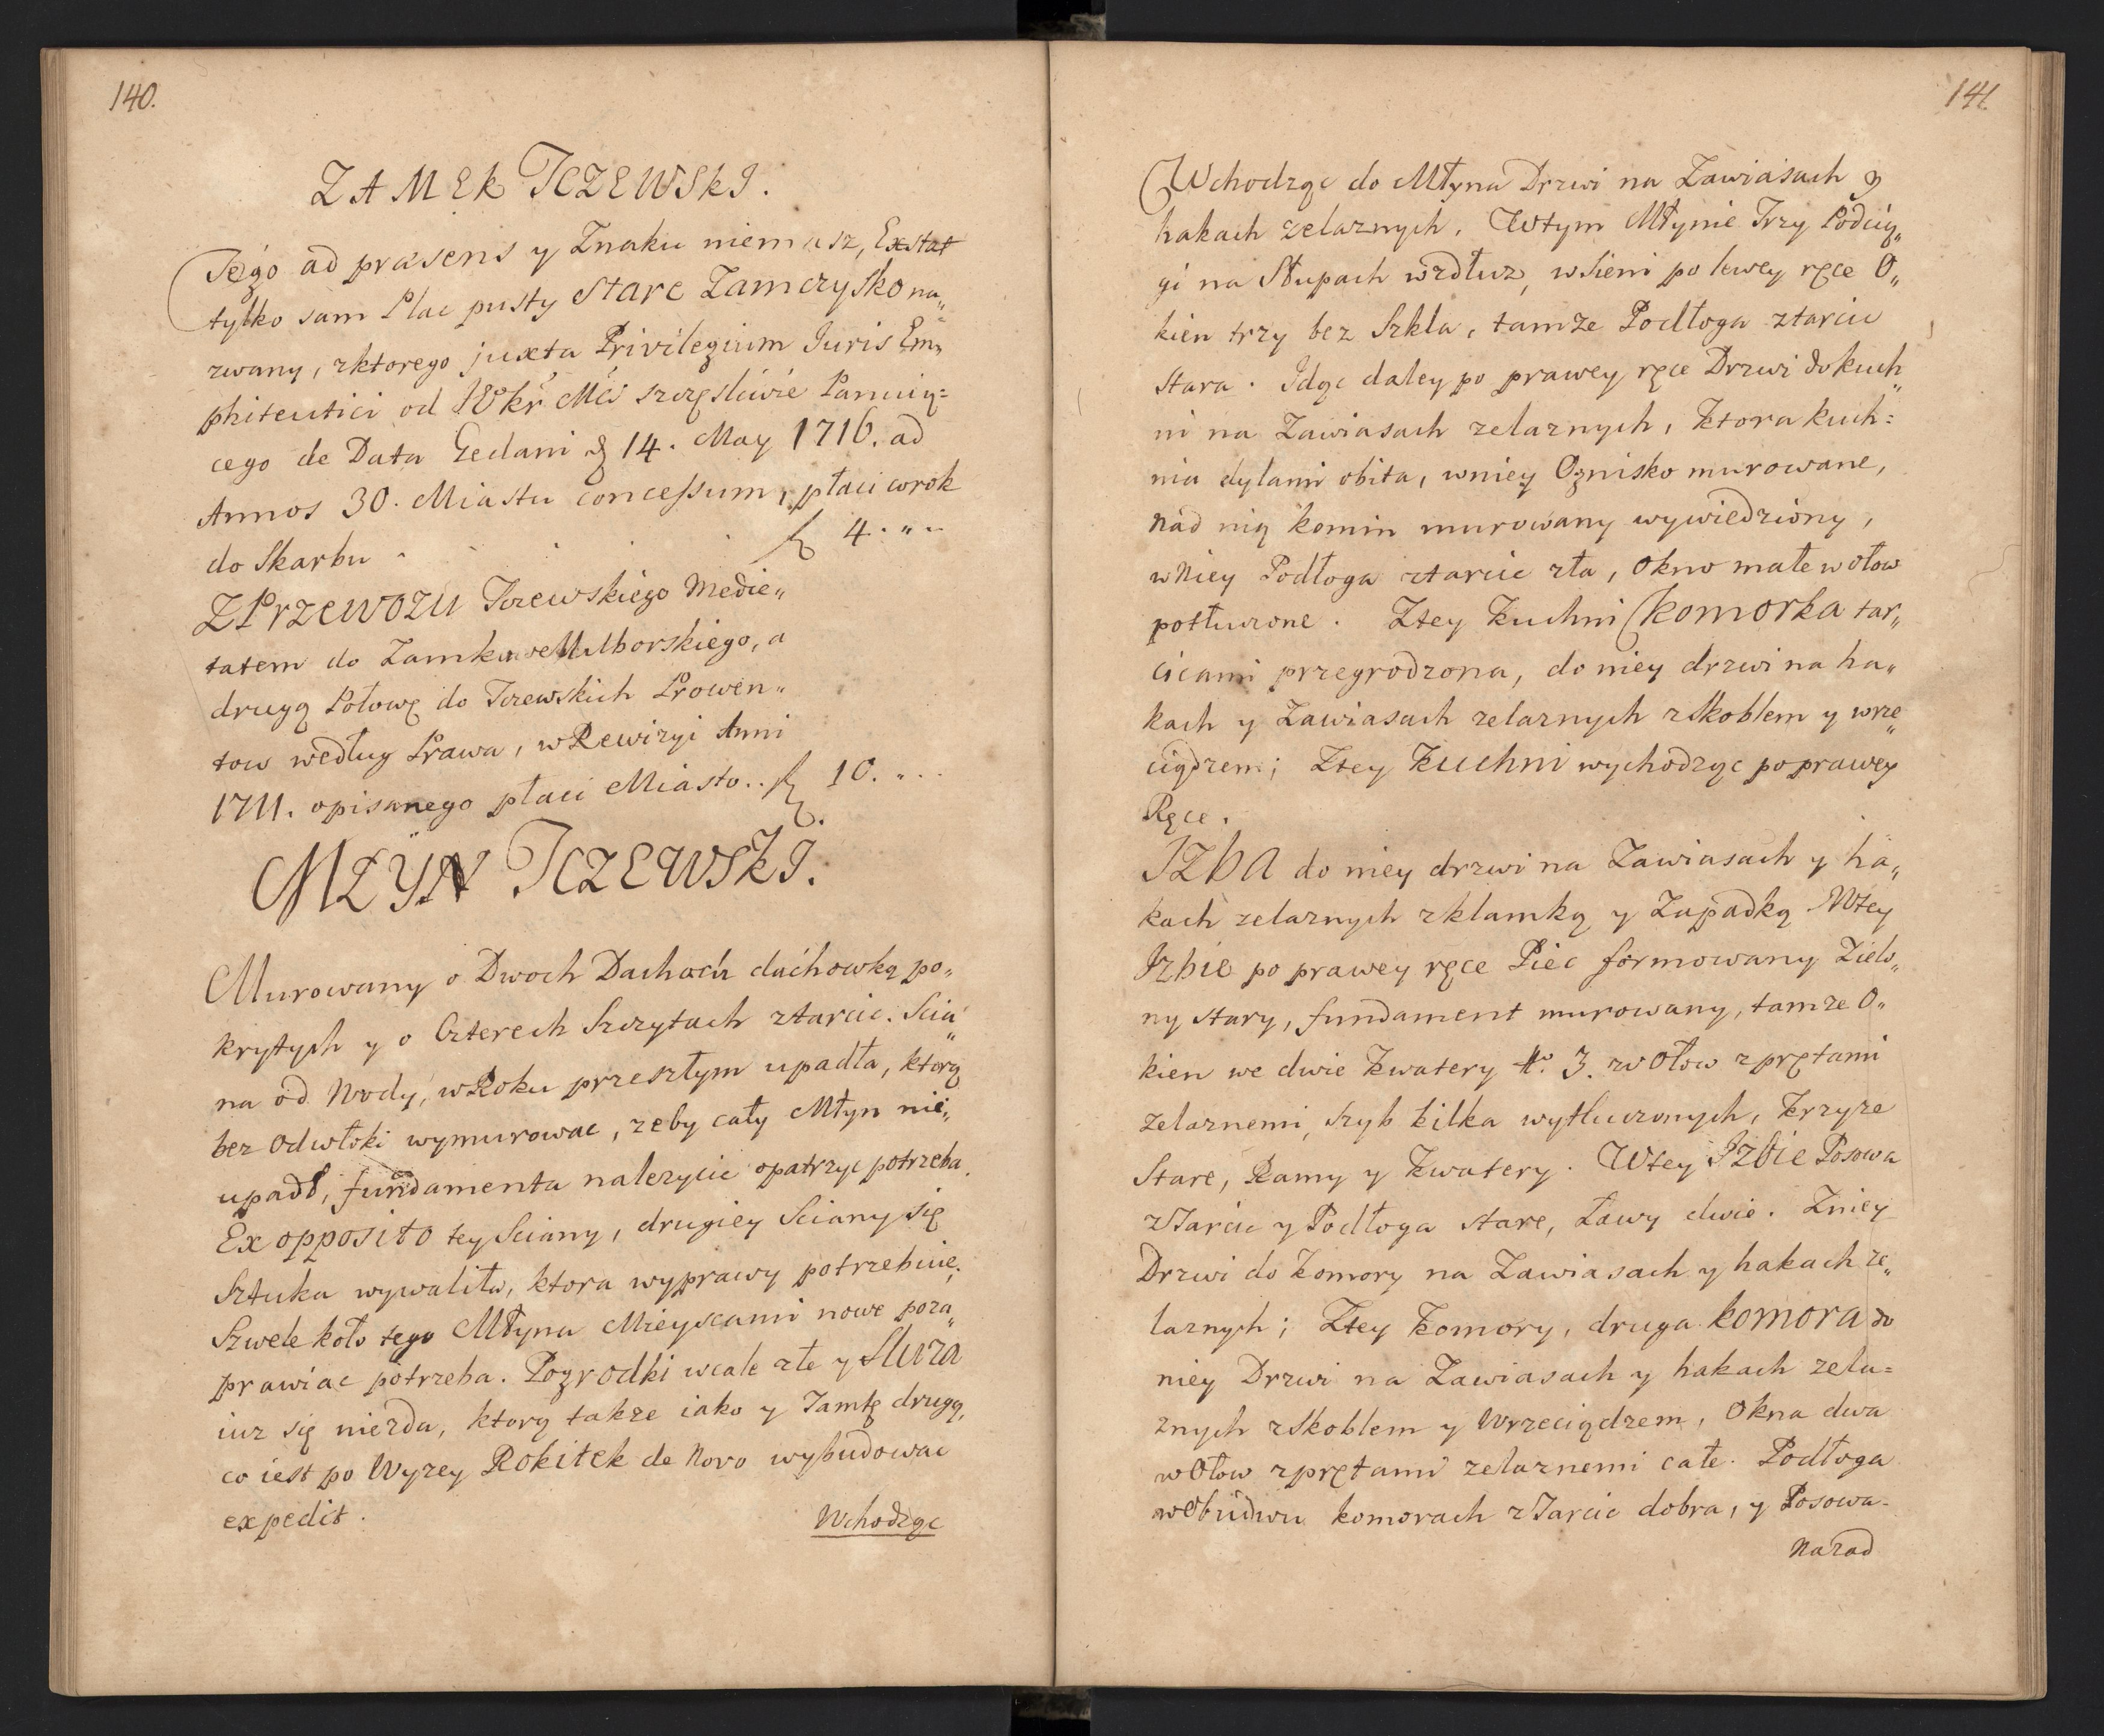 140.
ZAMEK TCZEWSKI.
Tego ad præsens y Znaku niemasz, Exstat
tylko sam Plac pusty Stare Zamczysko na„
zwany, zktorego juxta Privilegium Iuris Em„
phiteutici od JWkr Mci szczęsliwie Panuią=
cego de Data Gedani d 14. May 1716. ad
Annos 30. Miastu concessum, płaci corok
do Skarbu . . . . f 4. „ „
Z Przewozu Tczewskiego Medie„
tatem do Zamku Malborskiego, a
drugą Połowę do Tczewskich Prowen„
tow według Prawa, w Rewizyi Anni
1711. opisanego płaci Miasto.. f 10. „ ..
MŁYN TCZEWSKI.
Murowany o Dwoch Dachach dachowką po„
krytych y o Czterech Szczytach ztarcic. Scia„
na od Wody, w Roku przeszłym upadła, ktorą
bez odwłoki wymurowac, zeby cały Młyn nie„
upadł, fundamenta nalezycie opatrzyc potrzeba.
Ex opposito tey Sciany, drugiey Sciany się
Sztuka wywaliła, ktora wyprawy potrzebuie.
Szwele koło tego Młyna Mieyscami nowe poza„
prawiac potrzeba. Pogrodki wcale złe y Sluza
iuz się niezda, ktorą takze iako y Tamtę drugą,
co iest po Wyzey Rokitek de Novo wybudowac
expedit.
Wchodząc
141.
Wchodząc do Młyna Drzwi na Zawiasach y
hakach zelaznych. Wtym Młynie Trzy Podcią„
gi na Słupach wzdłuz, w Sieni po lewey ręce O„
kien trzy bez Szkla, tamze Podłoga ztarcic
stara. Idąc daley po prawey ręce Drzwi do kuch„
ni na Zawiasach zelaznych, Ktora kuch=
nia dylami obita, wniey Ognisko murowane,
nad nią komin murowany wywiedziony,
wniey Podłoga ztarcic zła, okno małe wołow
potłuczone. Ztey Kuchni Komorka tar„
cicami przegrodzona, do niey drzwi na ha„
kach y Zawiasach zelaznych zSkoblem y wrze„
ciądzem; Ztey Kuchni wychodząc po prawey
Ręce.
IZBA do niey drzwi na Zawiasach y ha„
kach zelaznych zklamką y Zapadką Wtey
Izbie po prawey ręce Piec formowany Zielo„
ny stary, fundament murowany, tamze O„
kien we dwie Kwatery No. 3. w Ołow zprętami
zelaznemi, szyb kilka wytluczonych, Krzyze
Stare, Ramy y Kwatery. Wtey Izbie Posowa
zTarcic y Podłoga stare, Ławy dwie. Zniey
Drzwi do Komory na Zawiasach y hakach ze„
laznych; Ztey Komory, druga Komora do
niey Drzwi na Zawiasach y hakach zela=
znych zSkoblem y Wrzeciądzem, Okna dwa
wołow zprętami zelaznemi całe. Podłoga
wobudwu komorach zTarcic dobra, y Posowa.
Nazad